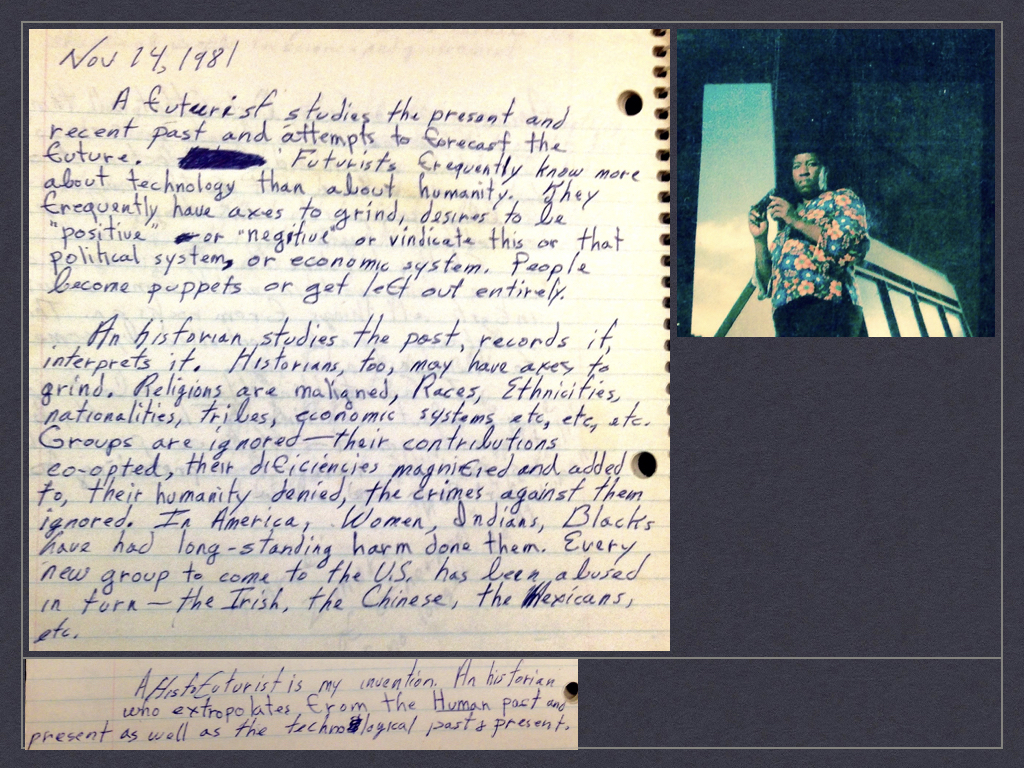 Nov 14, 1981
A futurist studies the present and
recent past and attempts to forecast the
future. Futurists frequently know more
about technology than about humanity. They
frequently have axes to grind, desires to be
"positive" or "negitive" or vindicate this or that
political system, or economic system. People
become puppets or get left out entirely.
An historian studies the past, records it,
interprets it. Historians, too, may have axes to
grind. Religions are maligned, Races, Ethnicities,
nationalities, tribes, economic systems, etc, etc, etc.
Groups are ignored—their contributions
co-opted, their dificiencies magnified and added
to, their humanity denied, the crimes against them
ignored. In America, Women, Indians, Blacks
have had long-standing harm done them. Every
new group to come to the U.S. has been abused
in turn—the Irish, the Chinese, the Mexicans,
etc.
A HistoFuturist is my invention. An historian
who extropolates from the Human past and
present as well as the technological past & present.